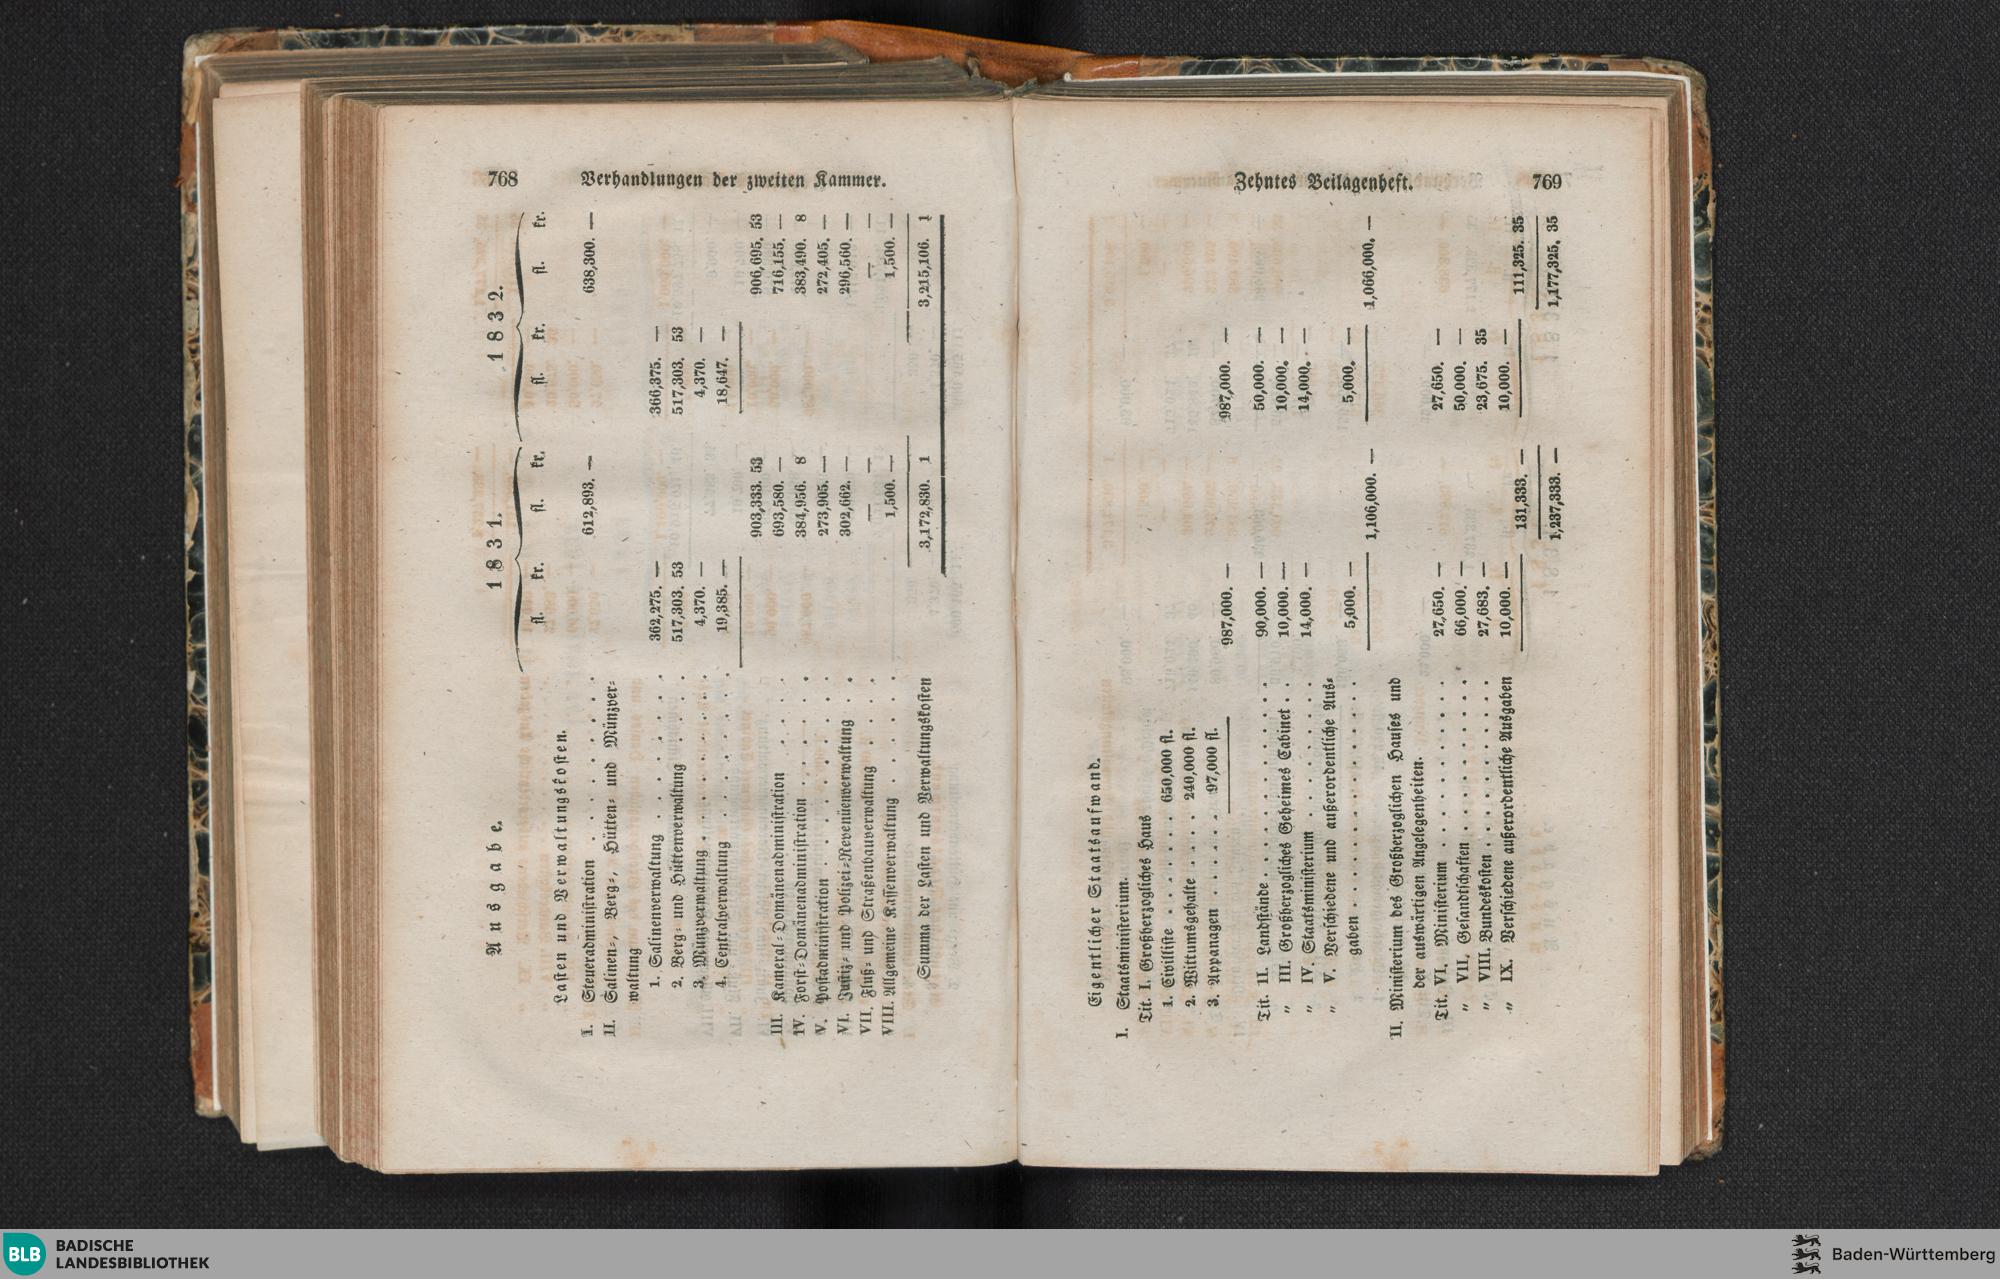 768 Verhandlungen der zweiten Kammer.
Ausgabe.
1831. 1832.
fl. kr. fl. kr. fl. kr. fl. kr.
Lasten und Verwaltungskosten.
I. Steueradministration . . . . . . . . . 612,893. — 638,300. —
II. Salinen-, Berg-, Hütten- und Münzver-
waltung
1. Salinenverwaltung . . . . . . . 362,275. — 366,375. —
2. Berg- und Hüttenverwaltung . . . . 517,303. 53 517,303. 53
3. Münzverwaltung . . . . . . . . 4,370. — 4,370. —
4. Centralverwaltung . . . . . . . 19,385. — 18,647. —
III. Kameral-Domänenadministration . . . . . 903,333. 53 906,695. 53
IV. Forst-Domänenadministration . . . . . . 693,580. — 716,155. —
V. Postadministration . . . . . . . . 384,956. 8 383,490. 8
VI. Justiz- und Polizei-Revenüenverwaltung . . 273,905. — 272,405. —
VII. Fluß- und Straßenbauverwaltung . . . . 302,662. — 296,560. —
VIII. Allgemeine Kassenverwaltung . . . . . — — — —
1,500. — 1,500. —
Summa der Lasten und Verwaltungskosten 3,172,830. 1 3,215,106. 1
Zehntes Beilagenheft. 769
Eigentlicher Staatsaufwand.
I. Staatsministerium.
Tit. I. Großherzogliches Haus
1. Civilliste . . . . . . . 650,000 fl.
2. Wittumsgehalte . . . . 240,000 fl.
3. Appanagen . . . . . . 97,000 fl.
987,000. — 987,000. —
Tit. II. Landstände . . . . . . . . . . 90,000. — 50,000. —
„ III. Großherzogliches Geheimes Cabinet . . 10,000. — 10,000. —
„ IV. Staatsministerium . . . . . . . . 14,000. — 14,000. —
„ V. Verschiedene und außerordentliche Aus-
gaben . . . . . . . . . . . . 5,000. — 5,000. —
1,106,000. — 1,066,000. —
II. Ministerium des Großherzoglichen Hauses und
der auswärtigen Angelegenheiten.
Tit. VI. Ministerium . . . . . . . . . 27,650. — 27,650. —
„ VII. Gesandtschaften . . . . . . . . 66,000. — 50,000. —
„ VIII. Bundeskosten . . . . . . . . . 27,683. — 23,675. 35
„ IX. Verschiedene außerordentliche Ausgaben 10,000. — 10,000. —
131,333. — 111,325. 35
1,237,333. — 1,177,325. 35
BLB BADISCHE
LANDESBIBLIOTHEK
Baden-Württemberg